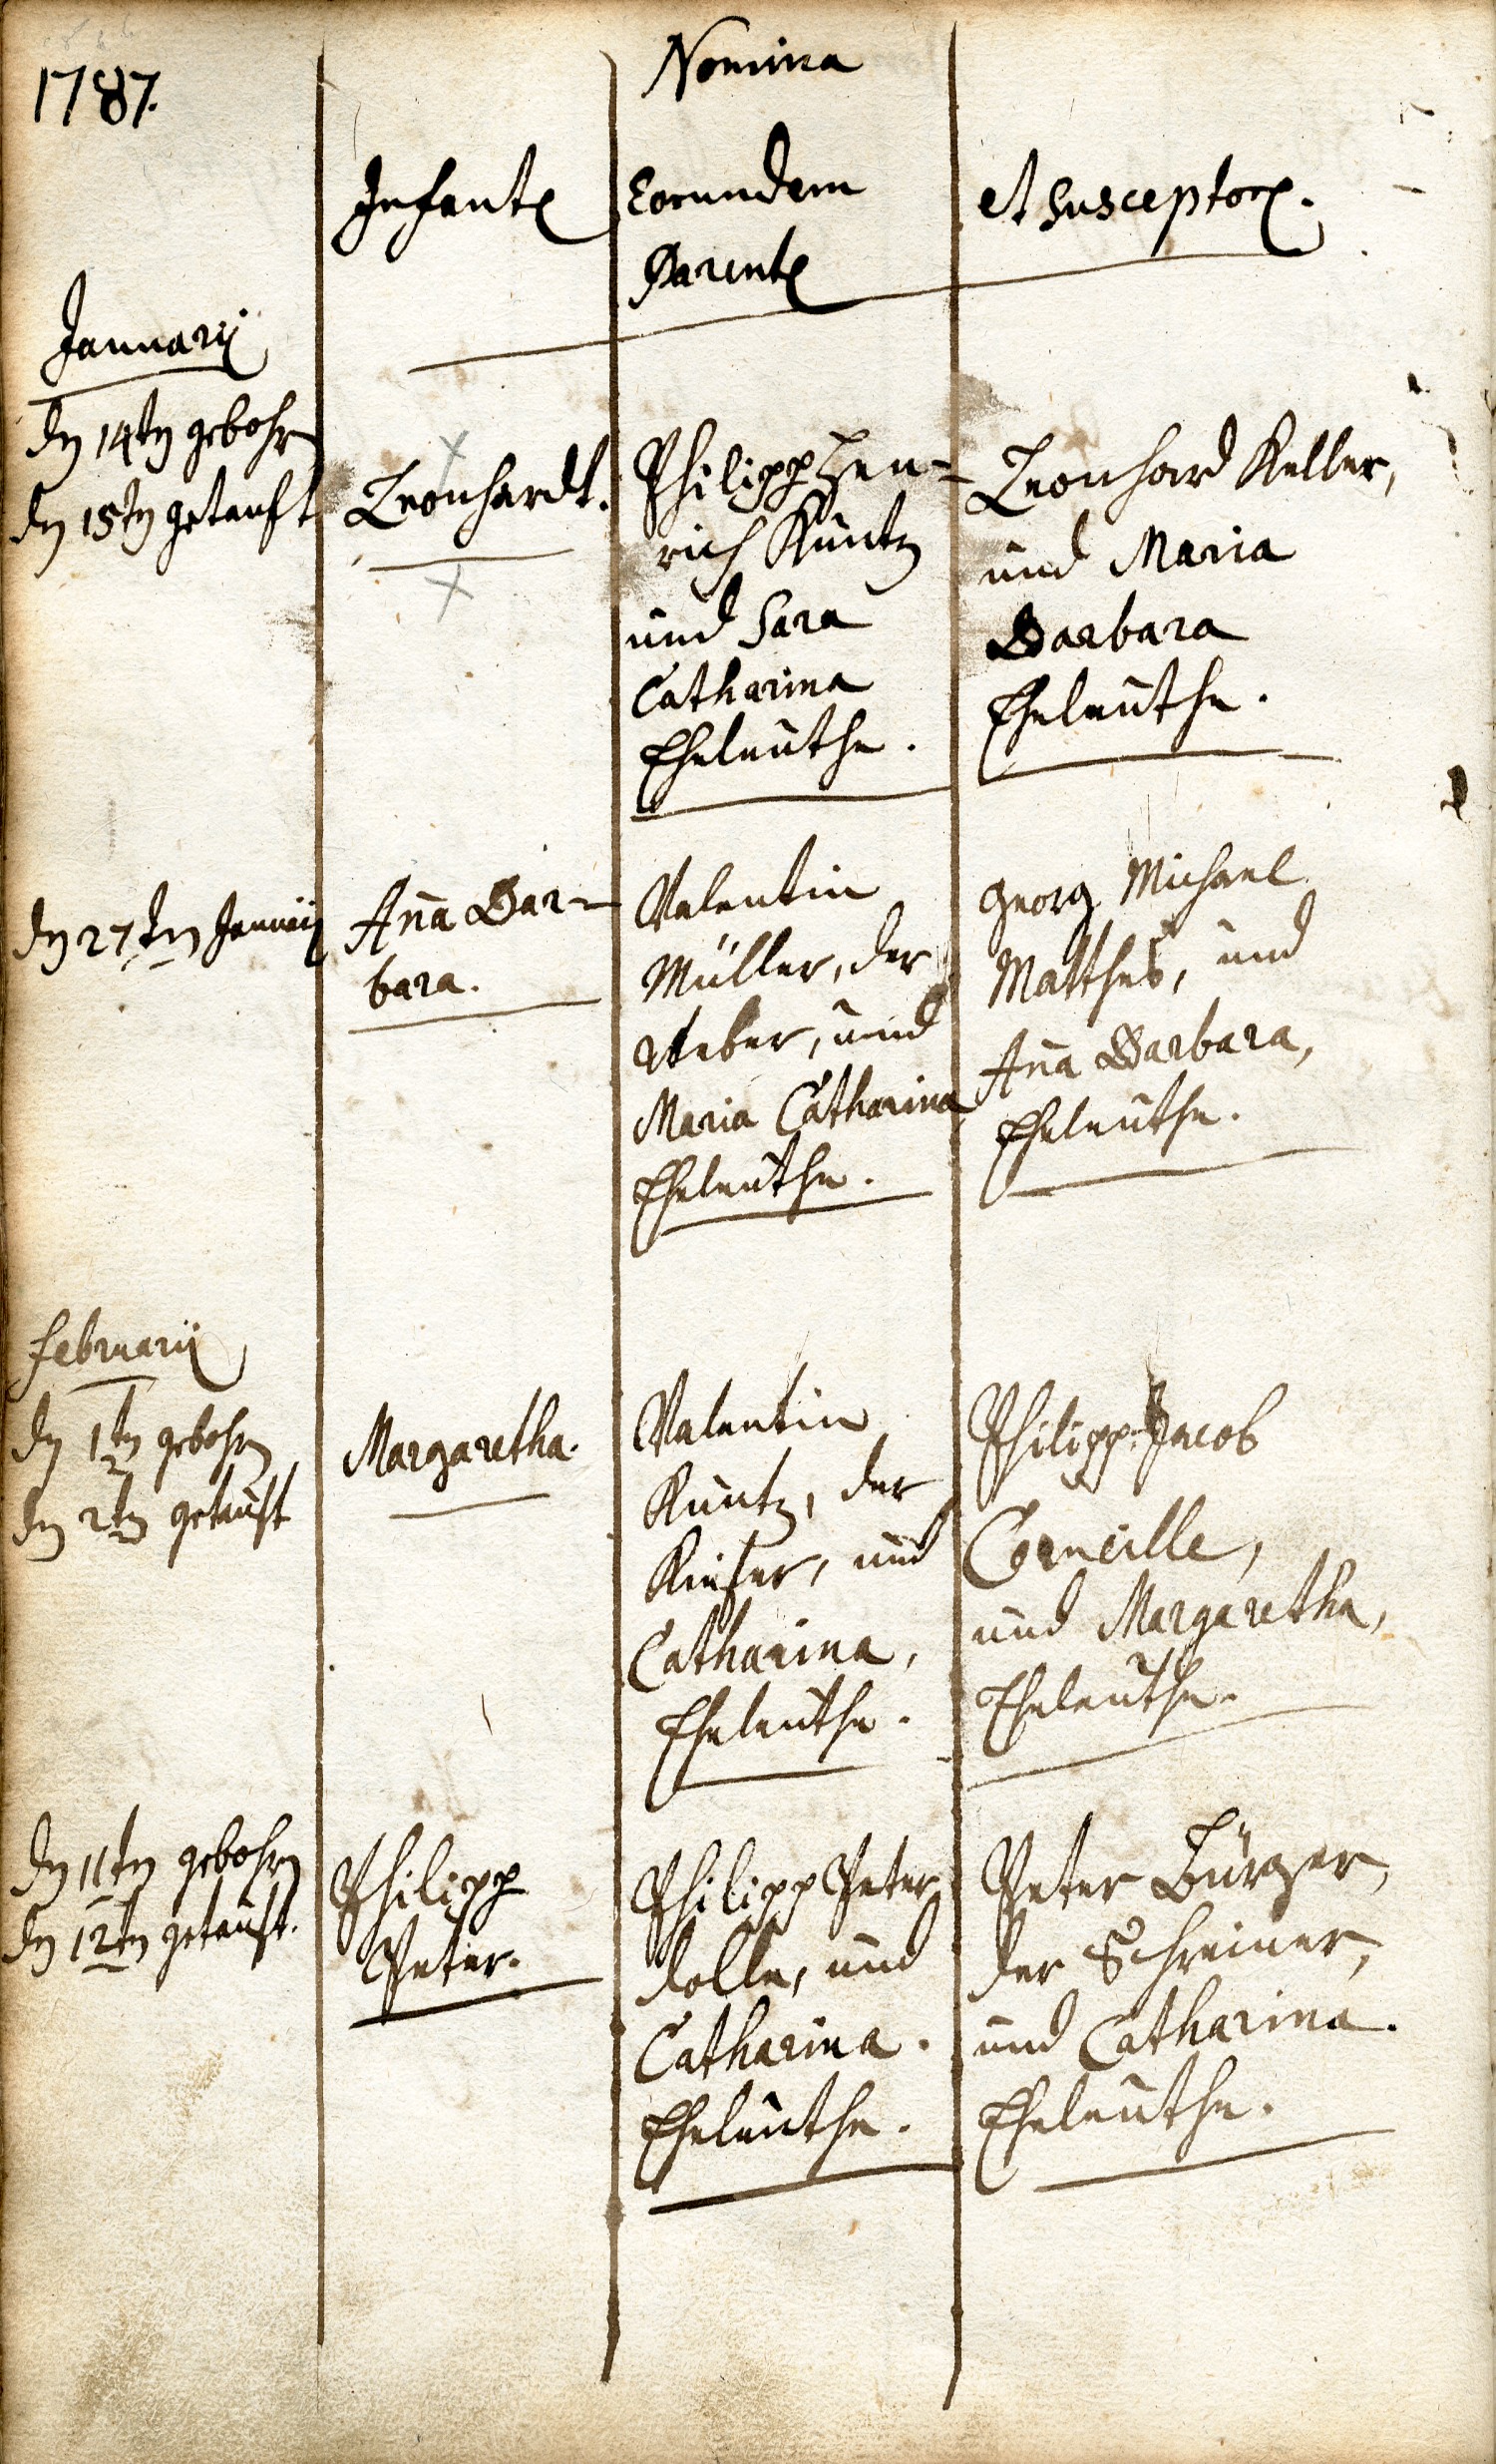 1787.
Nomina
Infant
Eorundem
Parent
et Susceptor.
Januarij
den 14ten gebohren
den 15ten getauft
Leonhardt.
Philipp Hen=
rich Kuntz
und Sara
Catharina
Eheleuthe.
Leonhard Keller,
und Maria
Barbara
Eheleuthe.
den 27ten Januarij
Anna Bar=
bara.
Valentin
Müller, der
Weber, und
Maria Catharina
Eheleuthe.
Georg Michael
Matthes, und
Anna Barbara,
Eheleuthe.
Februarii
den 1ten gebohren
den 2ten getauft
Margaretha.
Valentin
Kuntz, der
und
Catharina,
Eheleuthe.
Philipp Jacob
Corneille,
und Margaretha,
Eheleuthe.
den 11ten gebohren
den 12ten getauft.
Philipp
Peter.
Philipp Peter
Dolle, und
Catharina.
Eheleuthe.
Peter Bürger,
der Schreiner,
und Catharina.
Eheleuthe.